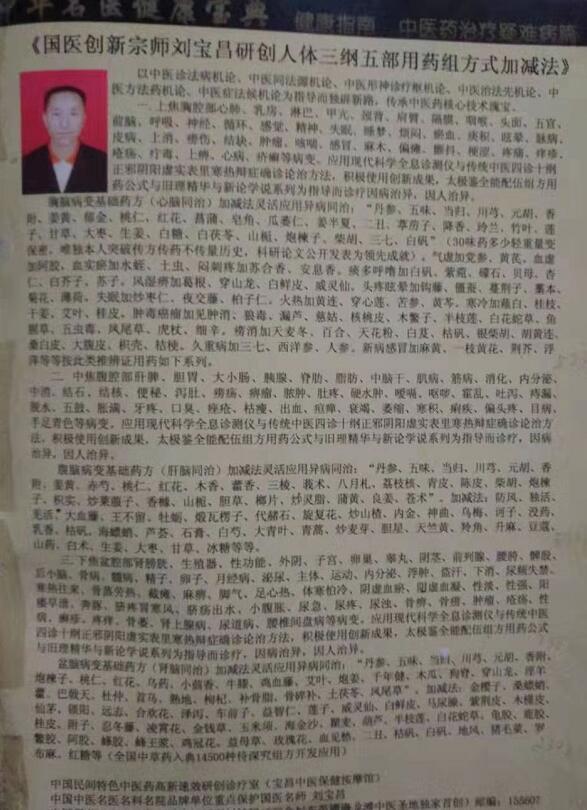 年名医健康宝典
健康指南 中医药治疗疑难病
《国医创新宗师刘宝昌研创人体三纲五部用药组方式加减法》
以中医诊法病机论、中医同法源机论、中医形神诊疗枢机论、中医治法先机论、中
医方法药机论、中医症法候机论为指导而独辟新路，传承中医药核心技术瑰宝。
一.上焦胸腔部心肺、乳房、淋巴、甲亢、颈背、肩臂、隔膜、咽喉、头面、五官、
前脑、呼吸、神经、循环、感觉、精神、失眠、睡梦、烦闷、瘀血、痰积、眩晕、脉病、
皮病、上消、痨伤、结块、肿瘤、咳喘、感冒、麻木、偏瘫、颤抖、梗涩、疼痛、痒疹、
疮疡、疔毒、上痹、心病、疥癣等病变。应用现代科学全息诊测仪与传统中医四诊十纲
正邪阴阳虚实表里寒热辩症确诊论治方法，积极使用创新成果，太极鉴全能配伍组方用
药公式与旧理精华与新论学说系列为指导而诊疗因病治异，因人治异。
胸脑病变基础药方（心脑同治）加减法灵活应用异病同治：“丹参、五味、当归、川芎、元胡、香
附、姜黄、郁金、桃仁、红花、菖蒲、皂角、瓜蒌仁、姜半夏、二丑、葶苈子、降香、玲兰、竹叶、莲
子、甘草、大枣、生姜、白糖、白茯苓、山栀、炮楝子、柴胡、三七、白矾”（30味药多少轻重量变
保密，唯独本人突破传方传药不传量历史，科研论文公开发表为领先成就）。气虚加党参、黄芪、血虚
加阿胶，血实瘀加水蛭、土虫、闷刺疼加苏合香、安息香。痰多呼噜加白矾、紫菀、礞石、贝母、杏
仁、白芥子、苏子。风湿痨加葛根、穿山龙、白鲜皮、威灵仙、头疼眩晕加钩藤、僵蚕、蔓荆子、藁本、
菊花、薄荷。失眠加炒枣仁、夜交藤、柏子仁。火热加黄连、穿心莲、苦参、黄芩、寒冷加蔻白、桂枝、
干姜、艾叶、桂皮。肿毒癌瘤加见肿消、狼毒、漏芦、慈姑、核桃皮、木鳖子、半枝莲、白花蛇草、鱼
腥草、五虫毒、凤尾草、虎杖、细辛。痨消加天麦冬、百合、天花粉、白芨、枯矾、银柴胡、胡黄连、
桑白皮、大腹皮、枳壳、桔梗。久重病加三七、西洋参、人参。新病感冒加麻黄、一枝黄花、荆芥、浮
萍等等按此类推辨证用药如下系列。
二.中焦腹腔部肝脾、胆胃、大小肠、胰腺、脊肋、脂肪、中脑干、肌病、筋病、消化、内分泌、
中渣、结石、结核、便秘、泻肚、痨痛、痹瘤、脓肿、肚疼、硬水肿、嗳嗝、呕哕、霍乱、吐泻、痔漏、
脱水、五鼓、胀满、牙疼、口臭、痤疮、枯瘦、出血、疸瘅、衰竭、萎缩、寒积、痢疾、偏头疼、目病、
手足青色等病变，应用现代科学全息诊测仪与传统中医四诊十纲正邪阴阳虚实表里寒热辩症确诊论治方
法，积极使用创新成果，太极鉴全能配伍组方用药公式与旧理精华与新论学说系列为指导而诊疗，因病
治异，因人治异。
腹脑病变基础药方（肝脑同治）加减法灵活应用异病同治：“丹参、五味、当归、川芎、元胡、香
附、姜黄、赤芍、桃仁、红花、木香、藿香、三棱、莪术、八月札、荔枝核、青皮、陈皮、柴胡、炮楝
子、枳实、炒莱菔子、香橼、山栀、胆草、榔片、炒灵脂、蒲黄、良姜、苍术”。加减法：防风、独活、
羌活、大血藤、王不留、牡蛎、煅瓦楞子、代赭石、旋复花、炒山楂、内金、神曲、乌梅、诃子、没药、
乳香、枯矾、海螵蛸、芦荟、石膏、白芍、大青叶、青蒿、炒麦芽、胆星、天竺黄、羚角、升麻、豆蔻、
山药、白术、生姜、大枣、甘草、冰糖等等。
三.下焦盆腔部肾膀胱、生殖器、性功能、外阴、子宫、卵巢、睾丸、阴茎、前列腺、腰胯、髋股、
后小脑、骨病、髓病、精子、卵子、月经病、泌尿、主体、运动、内分泌、浮肿、盗汗、下消、尿频失禁、
寒热往来、骨蒸劳热、截瘫、麻痹、脚气、足心热、体寒怕冷、阴虚血瘀、阳虚血凝、性淡、性强、阳
痿早泄、奔豚、脐疼冒寒风、脐疡出水、小腹胀、尿急、尿疼、尿浊、骨痨、骨痹、肿瘤、疮疡、性
病、癣疹、疼痒、骨萎、肾上腺病、尿道病、腰椎间盘病等病变，应用现代科学全息诊测仪与传统中医
四诊十纲正邪阴阳虚实表里寒热辩症确诊论治方法，积极使用创新成果，太极鉴全能配伍组方用药公式
与旧理精华与新论学说系列为指导而诊疗，因病治异，因人治异。
盆脑病变基础药方（肾脑同治）加减法灵活应用异病同治：“丹参、五味、当归、川芎、元胡、香附、
炮楝子、桃仁、红花、乌药、小茴香、牛膝、鸡血藤、艾叶、炮姜、千年健、木瓜、狗脊、穿山龙、淫羊
藿、巴戟天、杜仲、首乌、熟地、枸杞、补骨脂、骨碎补、土茯苓、凤尾草”。加减法：金樱子、桑螵蛸、
仙茅、锁阳、远志、合欢花、泽泻、车前子、益智仁、莲子、威灵仙、白鲜皮、马尿臊、紫荆皮、木槿皮、
桂皮、附子、忍冬藤、凌霄花、金钱草、玉米须、海金沙、瞿麦、葫芦、半枝莲、白花蛇草、龟胶、鹿胶、
鳖胶、阿胶、蜂胶、蜂王浆、鸡冠花、益母草、玫瑰花、血见愁、二丑、枯矾、白矾、地风、猪毛菜、罗
布麻。红糖等（全国中草药入典14500种待探究组方开发应用）
中国民间特色中医药高新速效研创诊疗室（宝昌中医保健按摩馆）
中国中医名医名科名院品牌单位重点保护国医名师 刘宝昌
邮编：155607